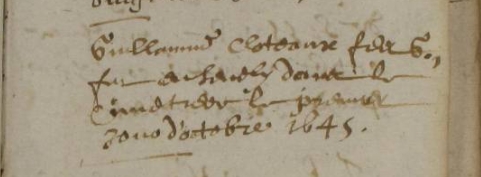 Guillaume Cloteaux feu G.
fut ensevely dans le
cimetiere le premier
Jour d'octobre 1645.